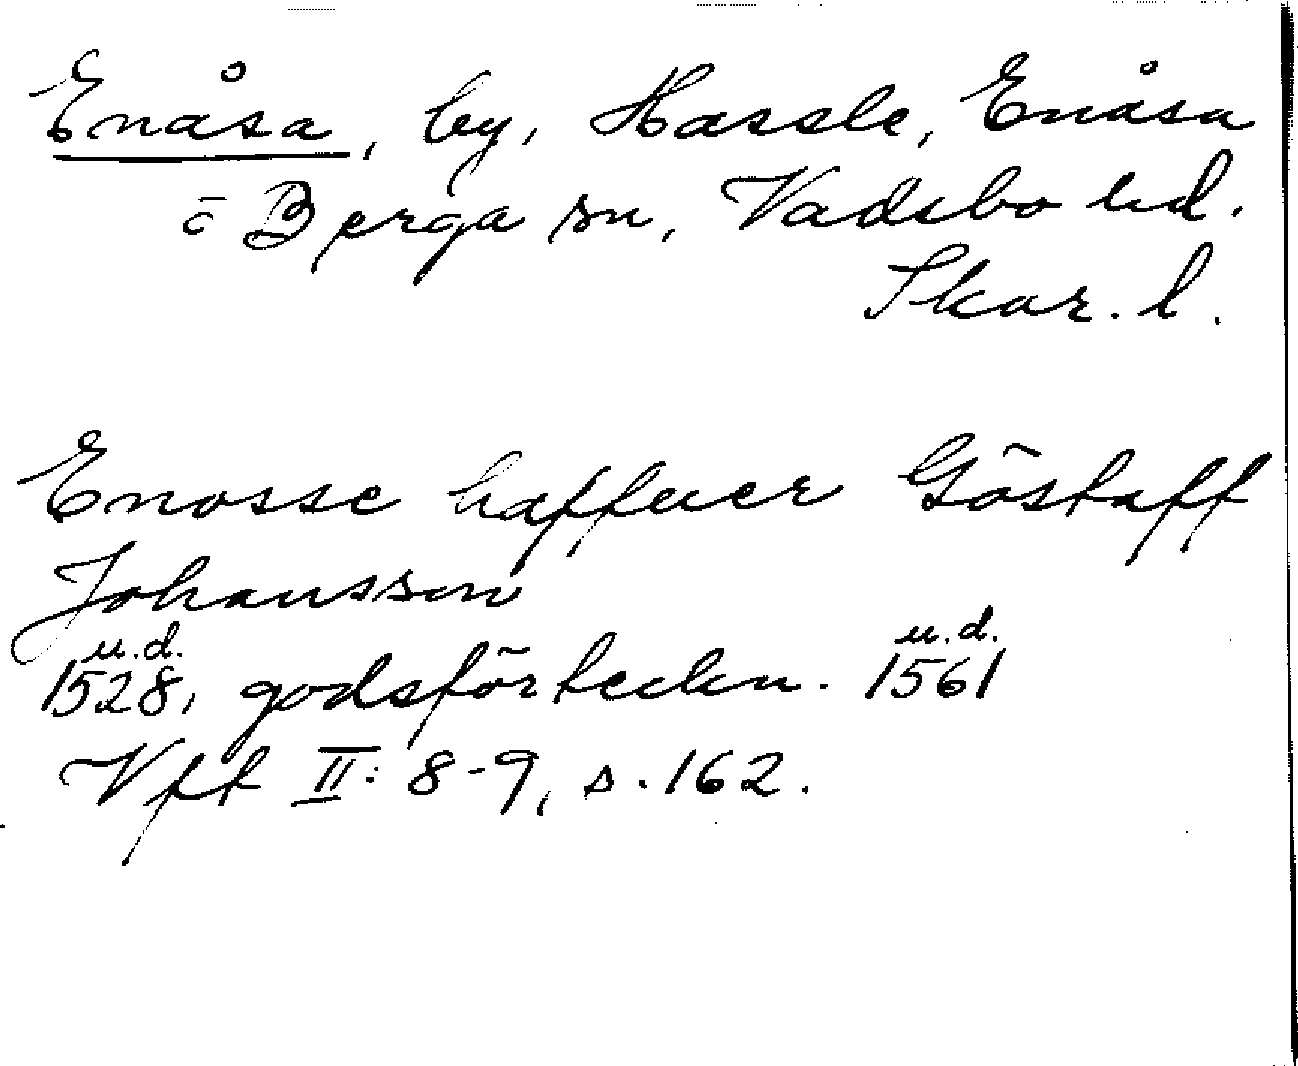 Enåsa, by, Hassle, Enåsa
o Berga sn, Vadsbo hd.
Skar. l.
Enosse haffuer Göstaff
Johansson
u.d. u.d.
1528, godsförteckn. 1561
Vff II: 8-9, s. 162.